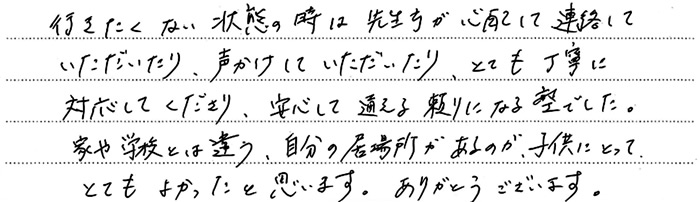 行きたくない状態の時は先生方が心配して連絡して
いただいたり、声かけしていただいたり、とても丁寧に
対応してくださり、安心して通える頼りになる塾でした。
家や学校とは違う、自分の居場所があるのが、子供にとって、
とてもよかったと思います。ありがとうございます。